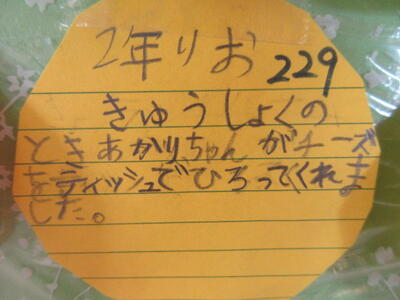 2年りお 229
きゅうしょくの
ときあかりちゃんがチーズ
をティッシュでひろってくれま
した。